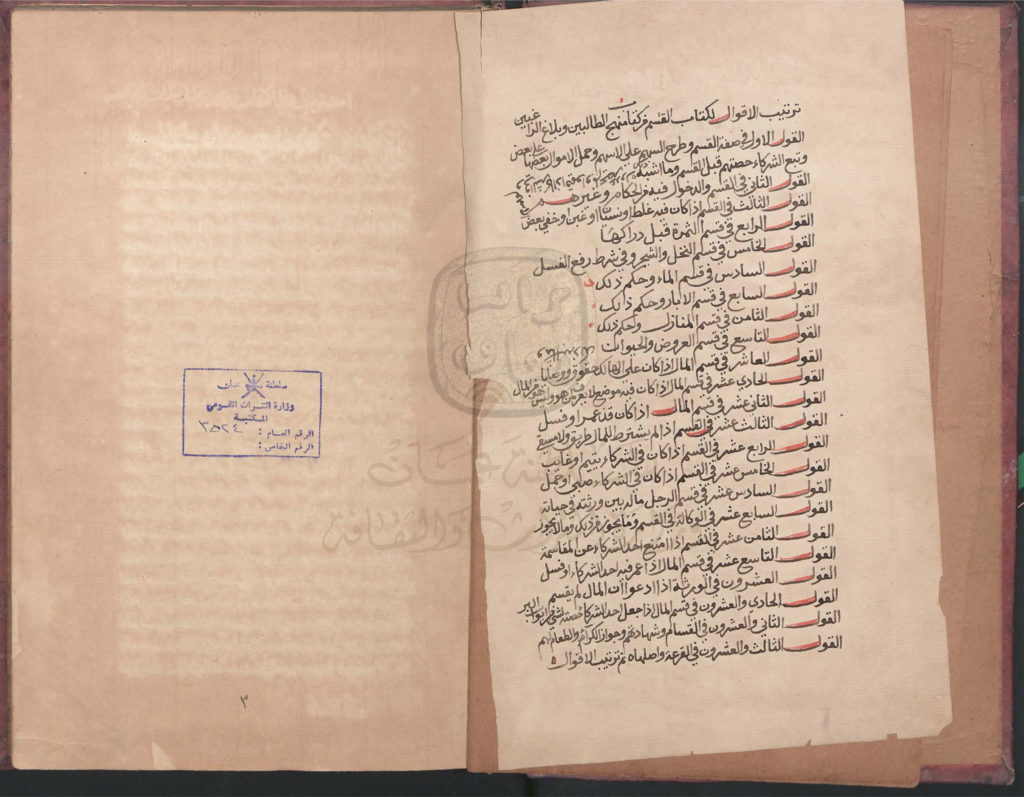 ترتيب الاقوال لكتاب القسم من كتاب منهج الطالبين وبلاغ الراغبين
القول الاول في صفة القسم وطرح السهم على الاسهم وحمل الاموال بعضها على بعض
وبيع الشركاء حصتهم قبل القسم وما اشبه
القول الثاني في القسم والدخول فيه من الحكام وغيرهم
القول الثالث في القسم اذا كان فيه غلط او نسيان او غبن او خفي بعض
القول الرابع في قسم الثمرة قبل دراكها
القول الخامس في قسم النخل والشجر وفي شرط رفع الفسل
القول السادس في قسم الماء وحكم ذلك
القول السابع في قسم الابار وحكم ذلك
القول الثامن في قسم المنازل وحكم ذلك
القول التاسع في قسم العروض والحيوان
القول العاشر في قسم المال اذا كان على الهالك حقوق ووصايا
القول الحادي عشر في قسم المال اذا كان فيه موضع لا يعرف من هو وليس هو من المال
القول الثاني عشر في قسم المال اذا كان قد عمر او فسل
القول الثالث عشر في القسم اذا لم يشترط للمال طريق ولا مسقى
القول الرابع عشر في القسم اذا كان في الشركاء يتيم او غايب
القول الخامس عشر في القسم اذا كان في الشركاء صبي او حمل
القول السادس عشر في قسم الرجل ماله بين ورثته في حياته
القول السابع عشر في الوكالة في القسم وما يجوز من ذلك وما لا يجوز
القول الثامن عشر في القسم اذا امتنع احد الشركاء عن المقاسمة
القول التاسع عشر في قسم المال اذا عمر فيه احد الشركاء او فسل
القول العشرون في الورثة اذا ادعوا ان المال لم يقسم
القول الحادي والعشرون في قسم المال اذا جعل احد الشركاء حصته لشي من ابواب البر
القول الثاني والعشرون في القسام وشهادتهم وجواز الكراء والطعام لهم
القول الثالث والعشرون في القرعة واصلها تم ترتيب الاقوال
سلطنة عمان
وزارة التراث القومي
المكتبة
الرقم العام : ٣٥٢٤
الرقم الخاص :
٣